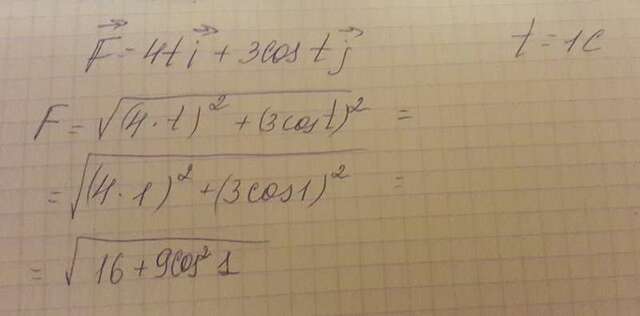 F⃗ = 4t i⃗ + 3cos t j⃗ t = 1c
F = √((4·t)² + (3cost)²) =
= √((4·1)² + (3cos1)²) =
= √(16 + 9cos² 1)